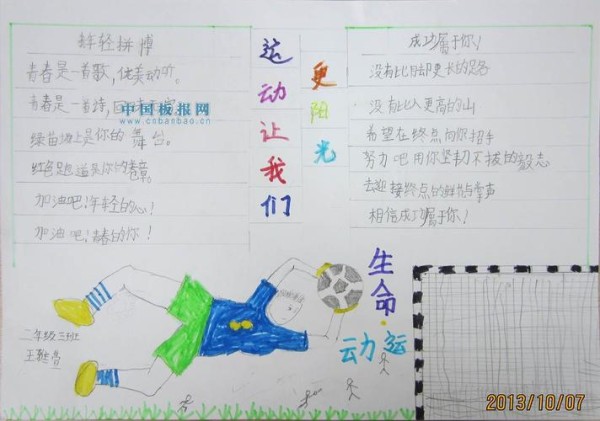 年轻拼搏
青春是一首歌,优美动听。
青春是一首诗,回味无穷。
中国板报网
www.cnbanbao.cn
绿茵场上是你的舞台。
红色跑道是你的卷章。
加油吧!年轻的心!
加油吧!青春的你!
运动让我们
更阳光
成功属于你!
没有比脚更长的路
没有比人更高的山
希望在终点向你招手
努力吧用你坚韧不拔的毅志
去迎接终点的鲜花与掌声
相信成功属于你!
生命·
动运
二年级三班
2013/10/07